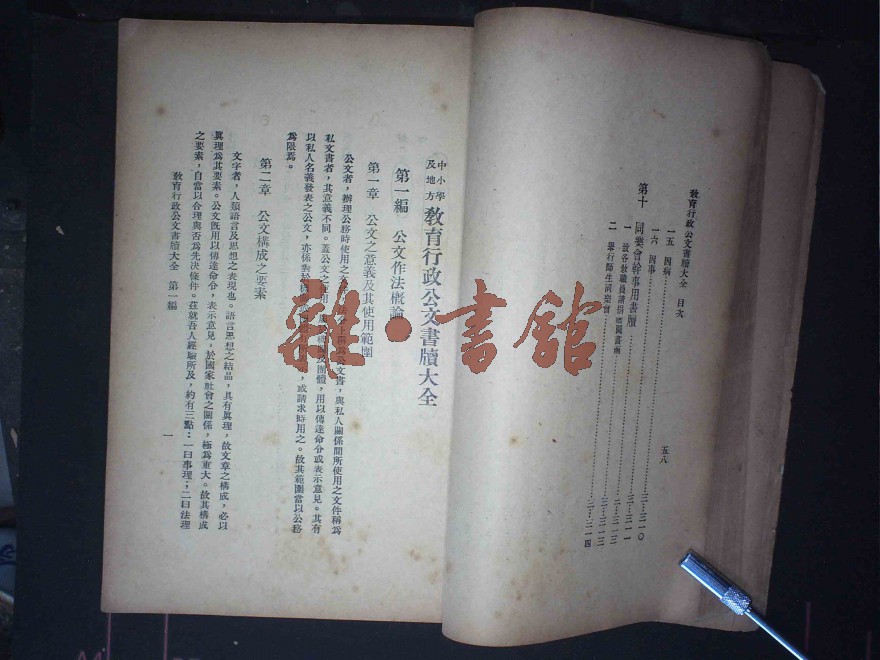 教育行政公文書牘大全 目次
一五 因病
一六 因事 三‧三一〇
第十 同樂會幹事用書牘 三‧三一一
一 致各教職員請捐 圖書 二‧三一三
二 舉行師生同樂會 三‧三一四
五八
中小學及地方教育行政公文書牘大全
第一編 公文作法概論
第一章 公文之意義及其使用範圍
公文者,辦理公務時使用之 上稱為公文書,與私人關係間所使用之文件稱為
私文書者,其意義不同。蓋公文之使用, 機關或團體,用以傳達命令或表示意見。其有
以私人名義發表之公文,亦係對於機關 ,或請求時用之。故其範圍當以公務
為限焉。
第二章 公文構成之要素
文字者,人類語言及思想之表現也。語言思想之結晶,具有眞理,故文章之構成,必以
眞理為其要素。公文旣用以傳達命令,表示意見,於國家社會之關係,極為重大。故其構成
之要素,自當以合理與否為先決條件。茲就吾人經驗所及,約有三點:一曰事理;二曰法理
教育行政公文書牘大全 第一編
一
雜·書館